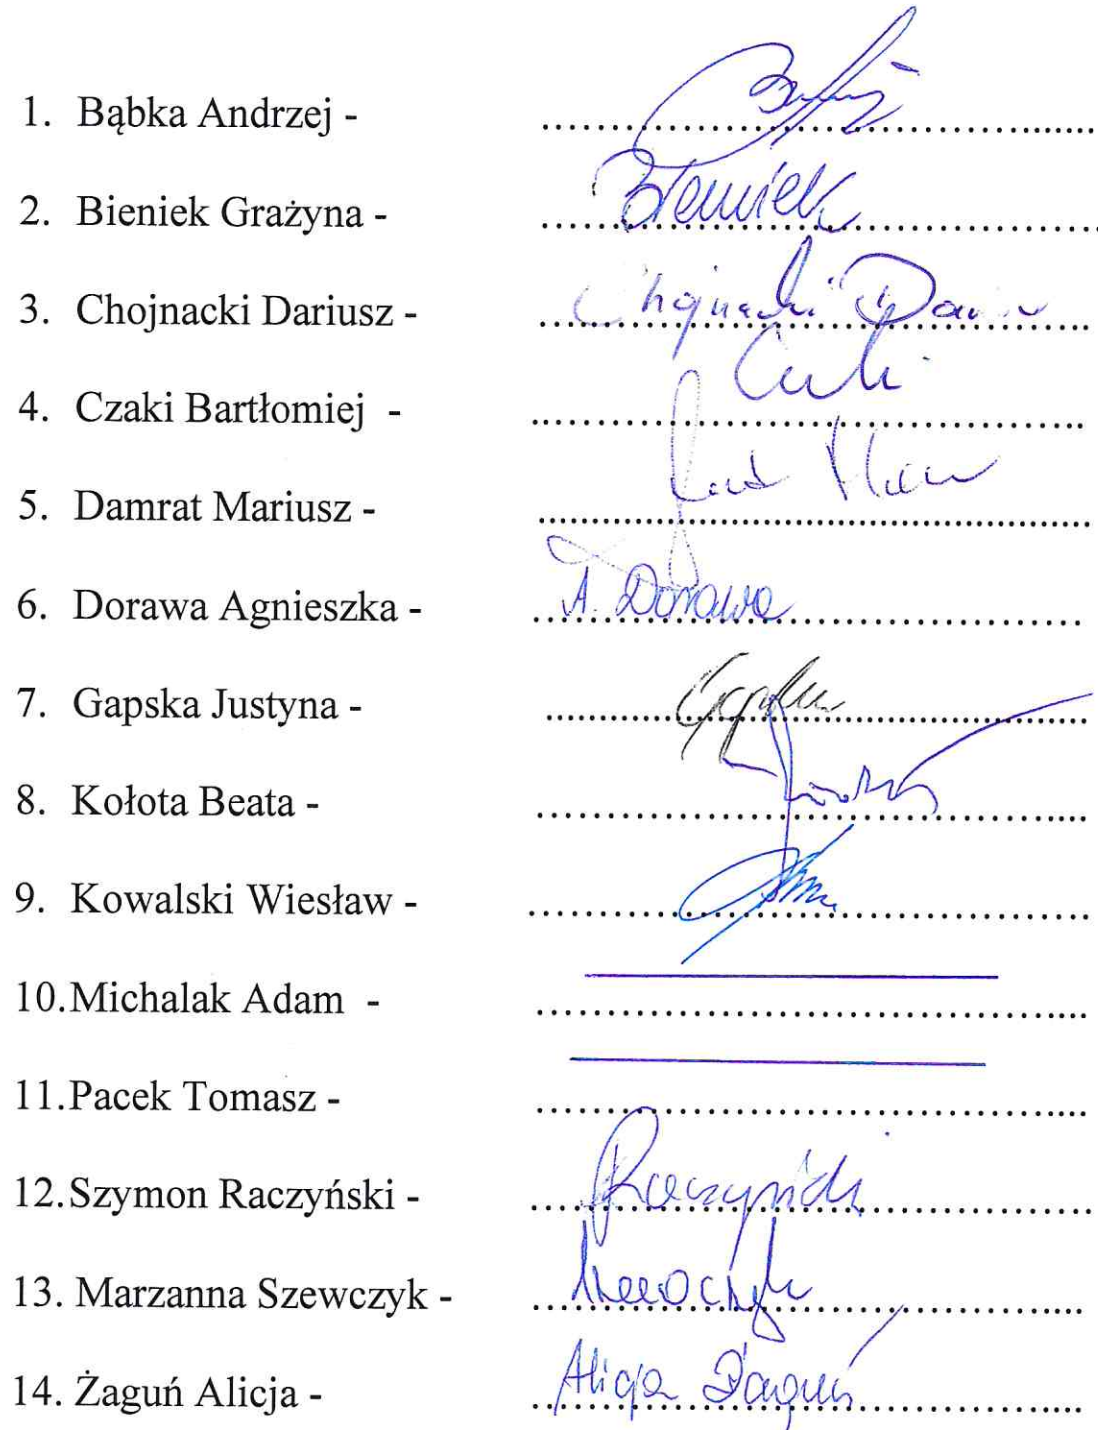 1. Bąbka Andrzej - ......................................................
2. Bieniek Grażyna - Bieniek
3. Chojnacki Dariusz - Chojnacki
4. Czaki Bartłomiej - ......................................................
5. Damrat Mariusz - ......................................................
6. Dorawa Agnieszka - A. Dorawa
7. Gapska Justyna - ......................................................
8. Kołota Beata - ......................................................
9. Kowalski Wiesław - ......................................................
10.Michalak Adam - ......................................................
11.Pacek Tomasz - ......................................................
12.Szymon Raczyński - Raczyński
13. Marzanna Szewczyk - ......................................................
14. Żaguń Alicja - Alicja Żaguń